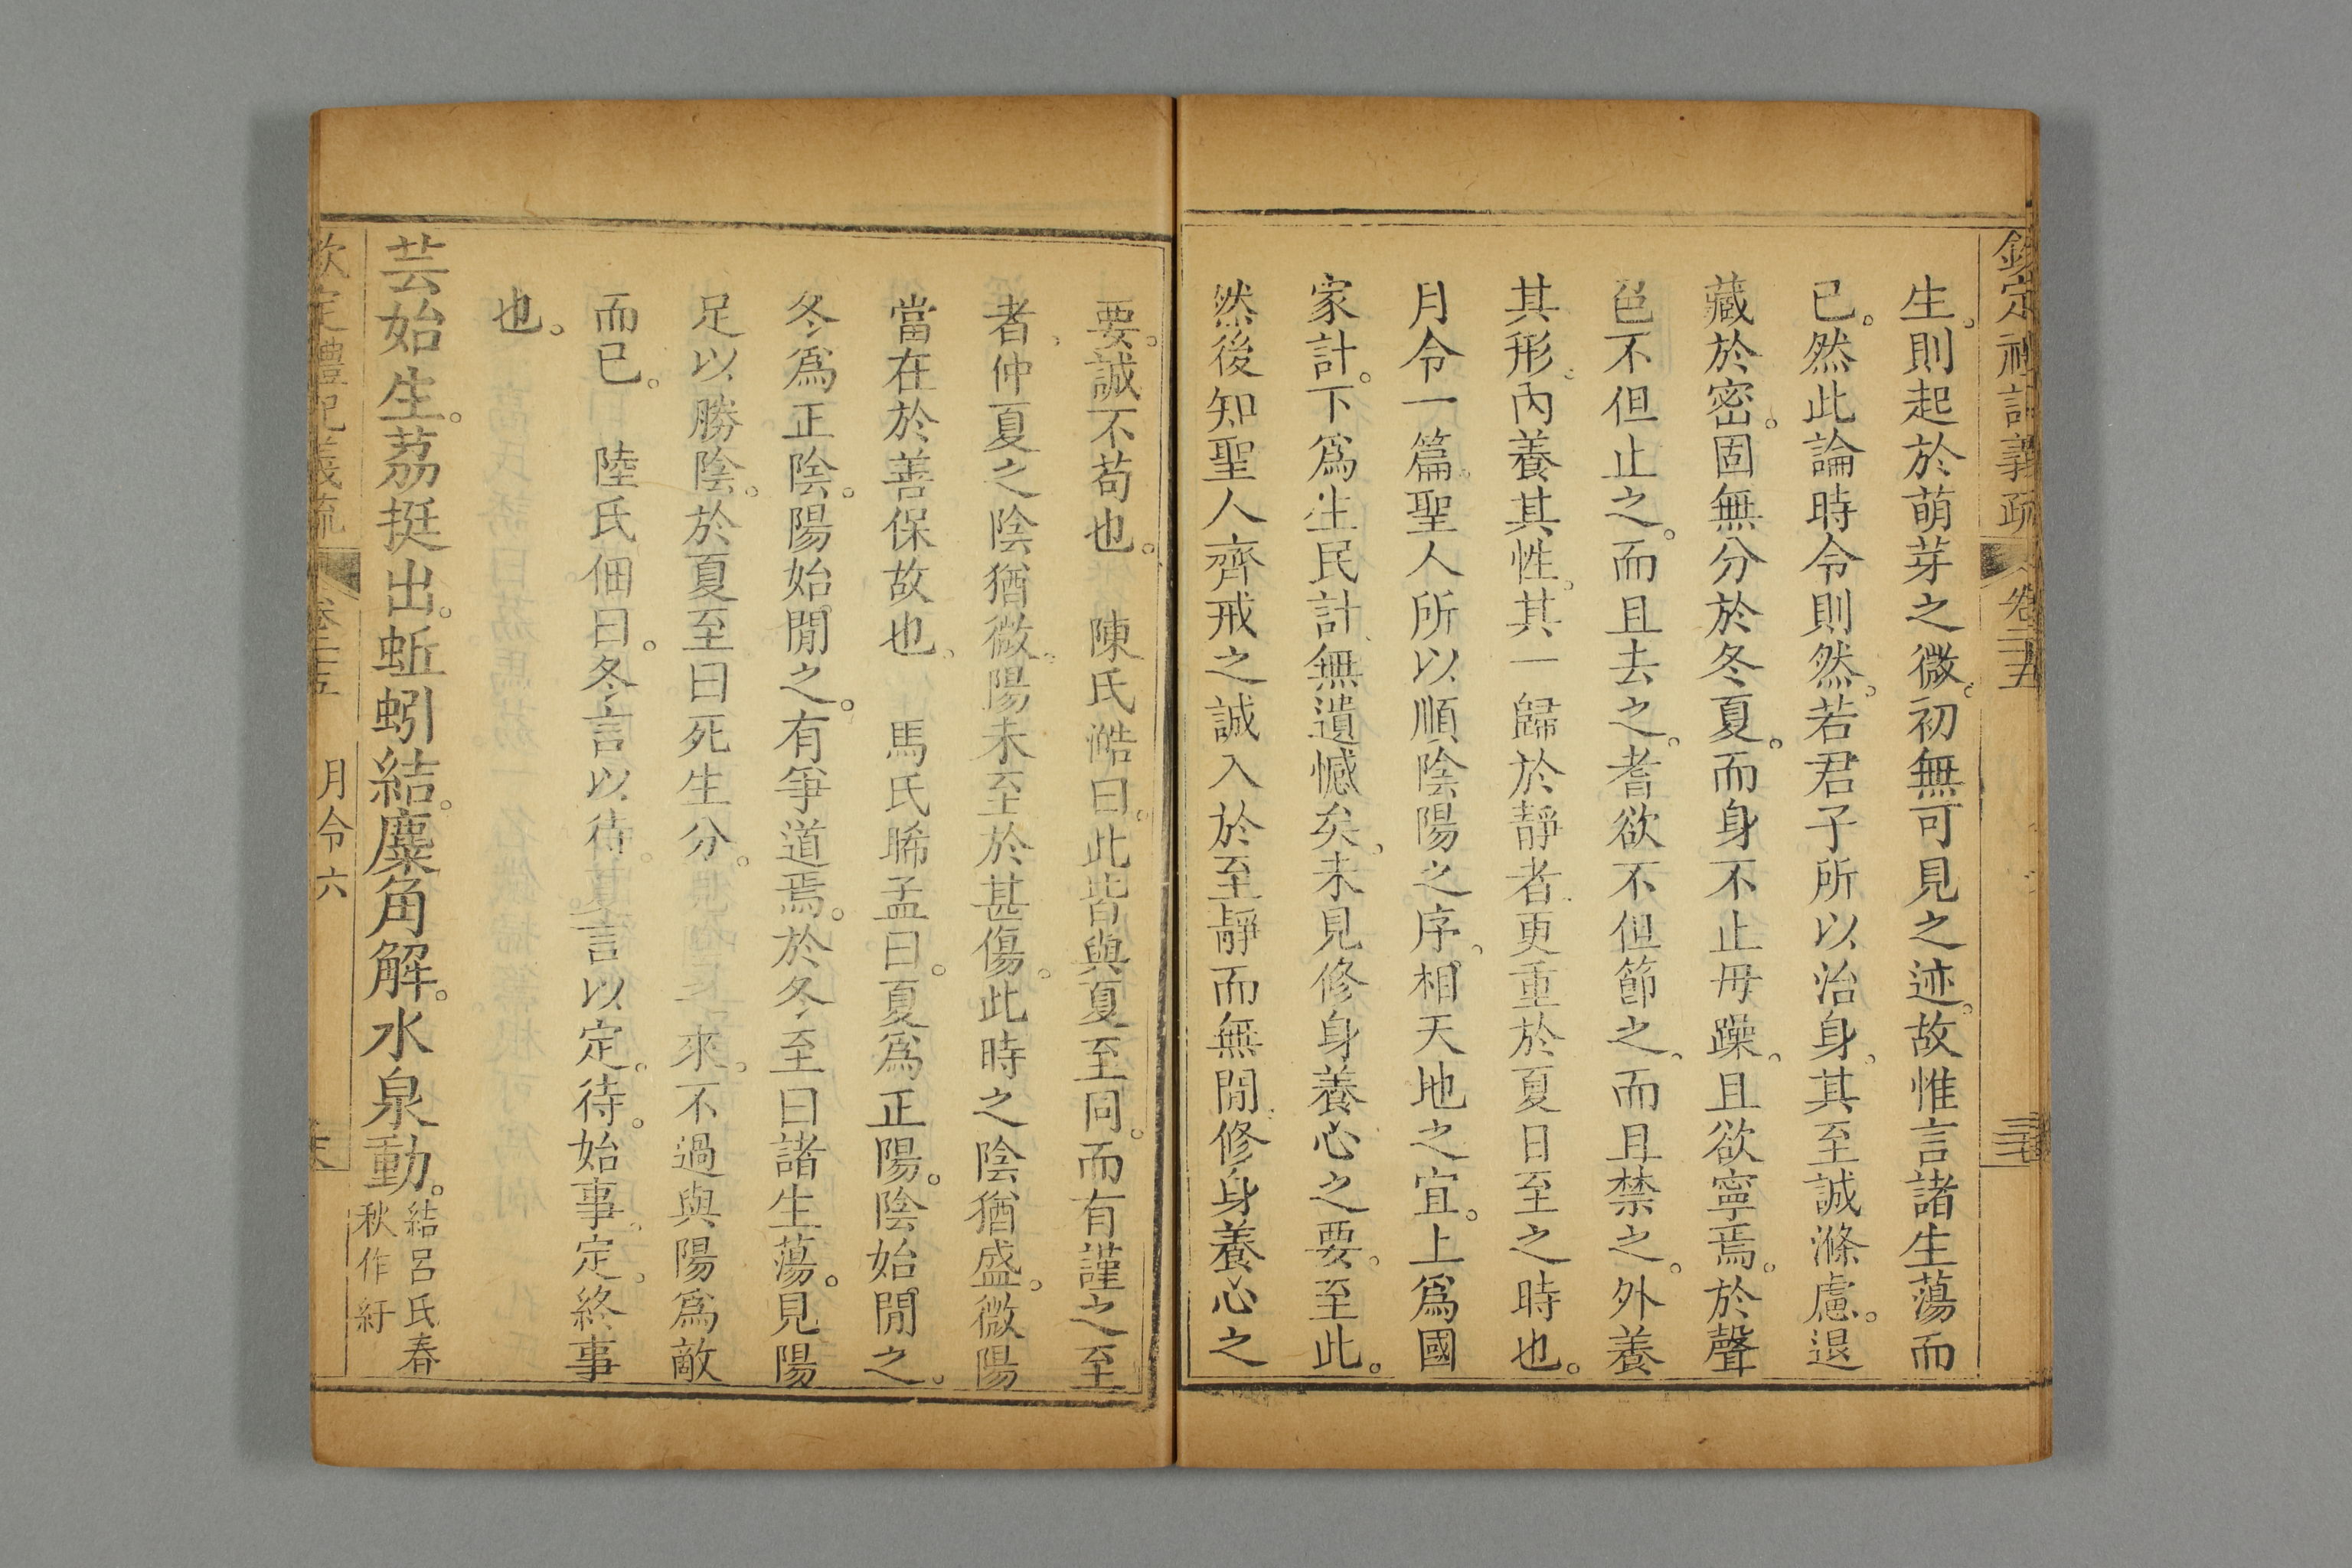 欽定禮記義疏 卷二十五
生。則起於萌芽之微。初無可見之迹。故惟言諸生蕩而
已。然此論時令則然。若君子所以治身。其至誠滌慮。退
藏於密。固無分於冬夏。而身不止毋躁。且欲寧焉。於聲
色不但止之。而且去之。耆欲不但節之。而且禁之。外養
其形。內養其性。其一歸於靜者。更重於夏日至之時也。
月令一篇。聖人所以順陰陽之序。相天地之宜。上爲國
家計。下爲生民計。無遺憾矣。未見修身養心之要。至此。
然後知聖人齊戒之誠入於至靜而無閒。修身養心之
要。誠不苟也。 陳氏澔曰。此皆與夏至同。而有謹之至
者。仲夏之陰猶微。陽未至於甚傷。此時之陰猶盛。微陽
當在於善保故也。 馬氏睎孟曰。夏爲正陽。陰始閒之。
冬爲正陰。陽始閒之。有爭道焉。於冬至曰諸生蕩。見陽
足以勝陰。於夏至曰死生分。 來。不過與陽爲敵
而已。 陸氏佃曰。冬言以待。夏言以定。待。始事。定。終事
也。
芸始生。荔挺出。蚯蚓結。麋角解。水泉動。結呂氏春
秋作紆
欽定禮記義疏 卷二十五 月令六